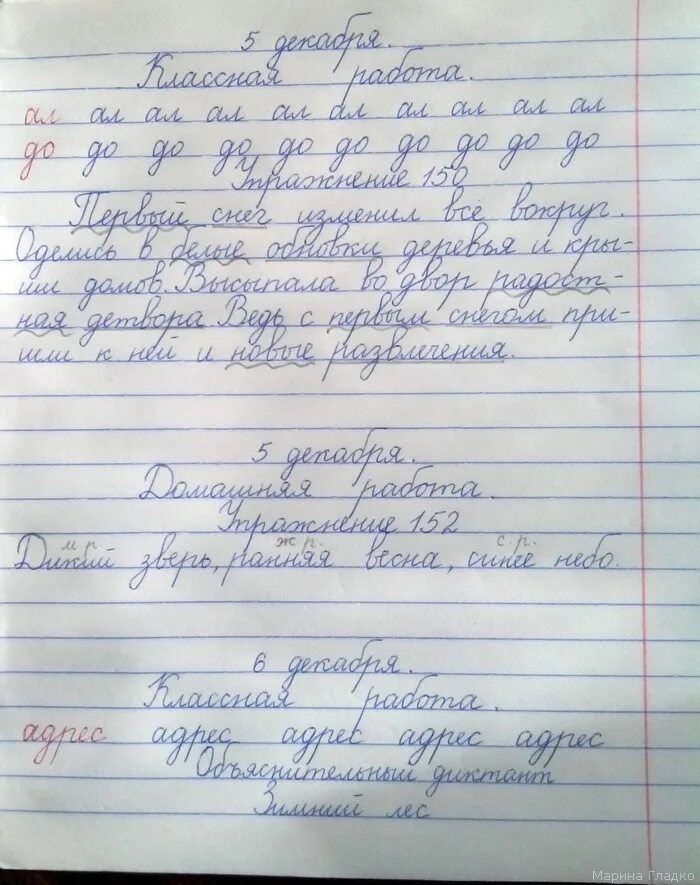 5 декабря.
Классная работа.
ал ал ал ал ал ал ал ал ал ал
до до до до до до до до до до
Упражнение 150
Первый снег изменил всё вокруг.
Оделись в белые обновки деревья и кры-
ши домов. Высыпала во двор радост-
ная детвора. Ведь с первым снегом при-
шли к ней и новые развлечения.
5 декабря.
Домашняя работа.
Упражнение 152
м.р. ж.р. с.р.
Дикий зверь, ранняя весна, синее небо.
6 декабря.
Классная работа.
адрес адрес адрес адрес адрес
Объяснительный диктант
Зимний лес
Марина Гладко